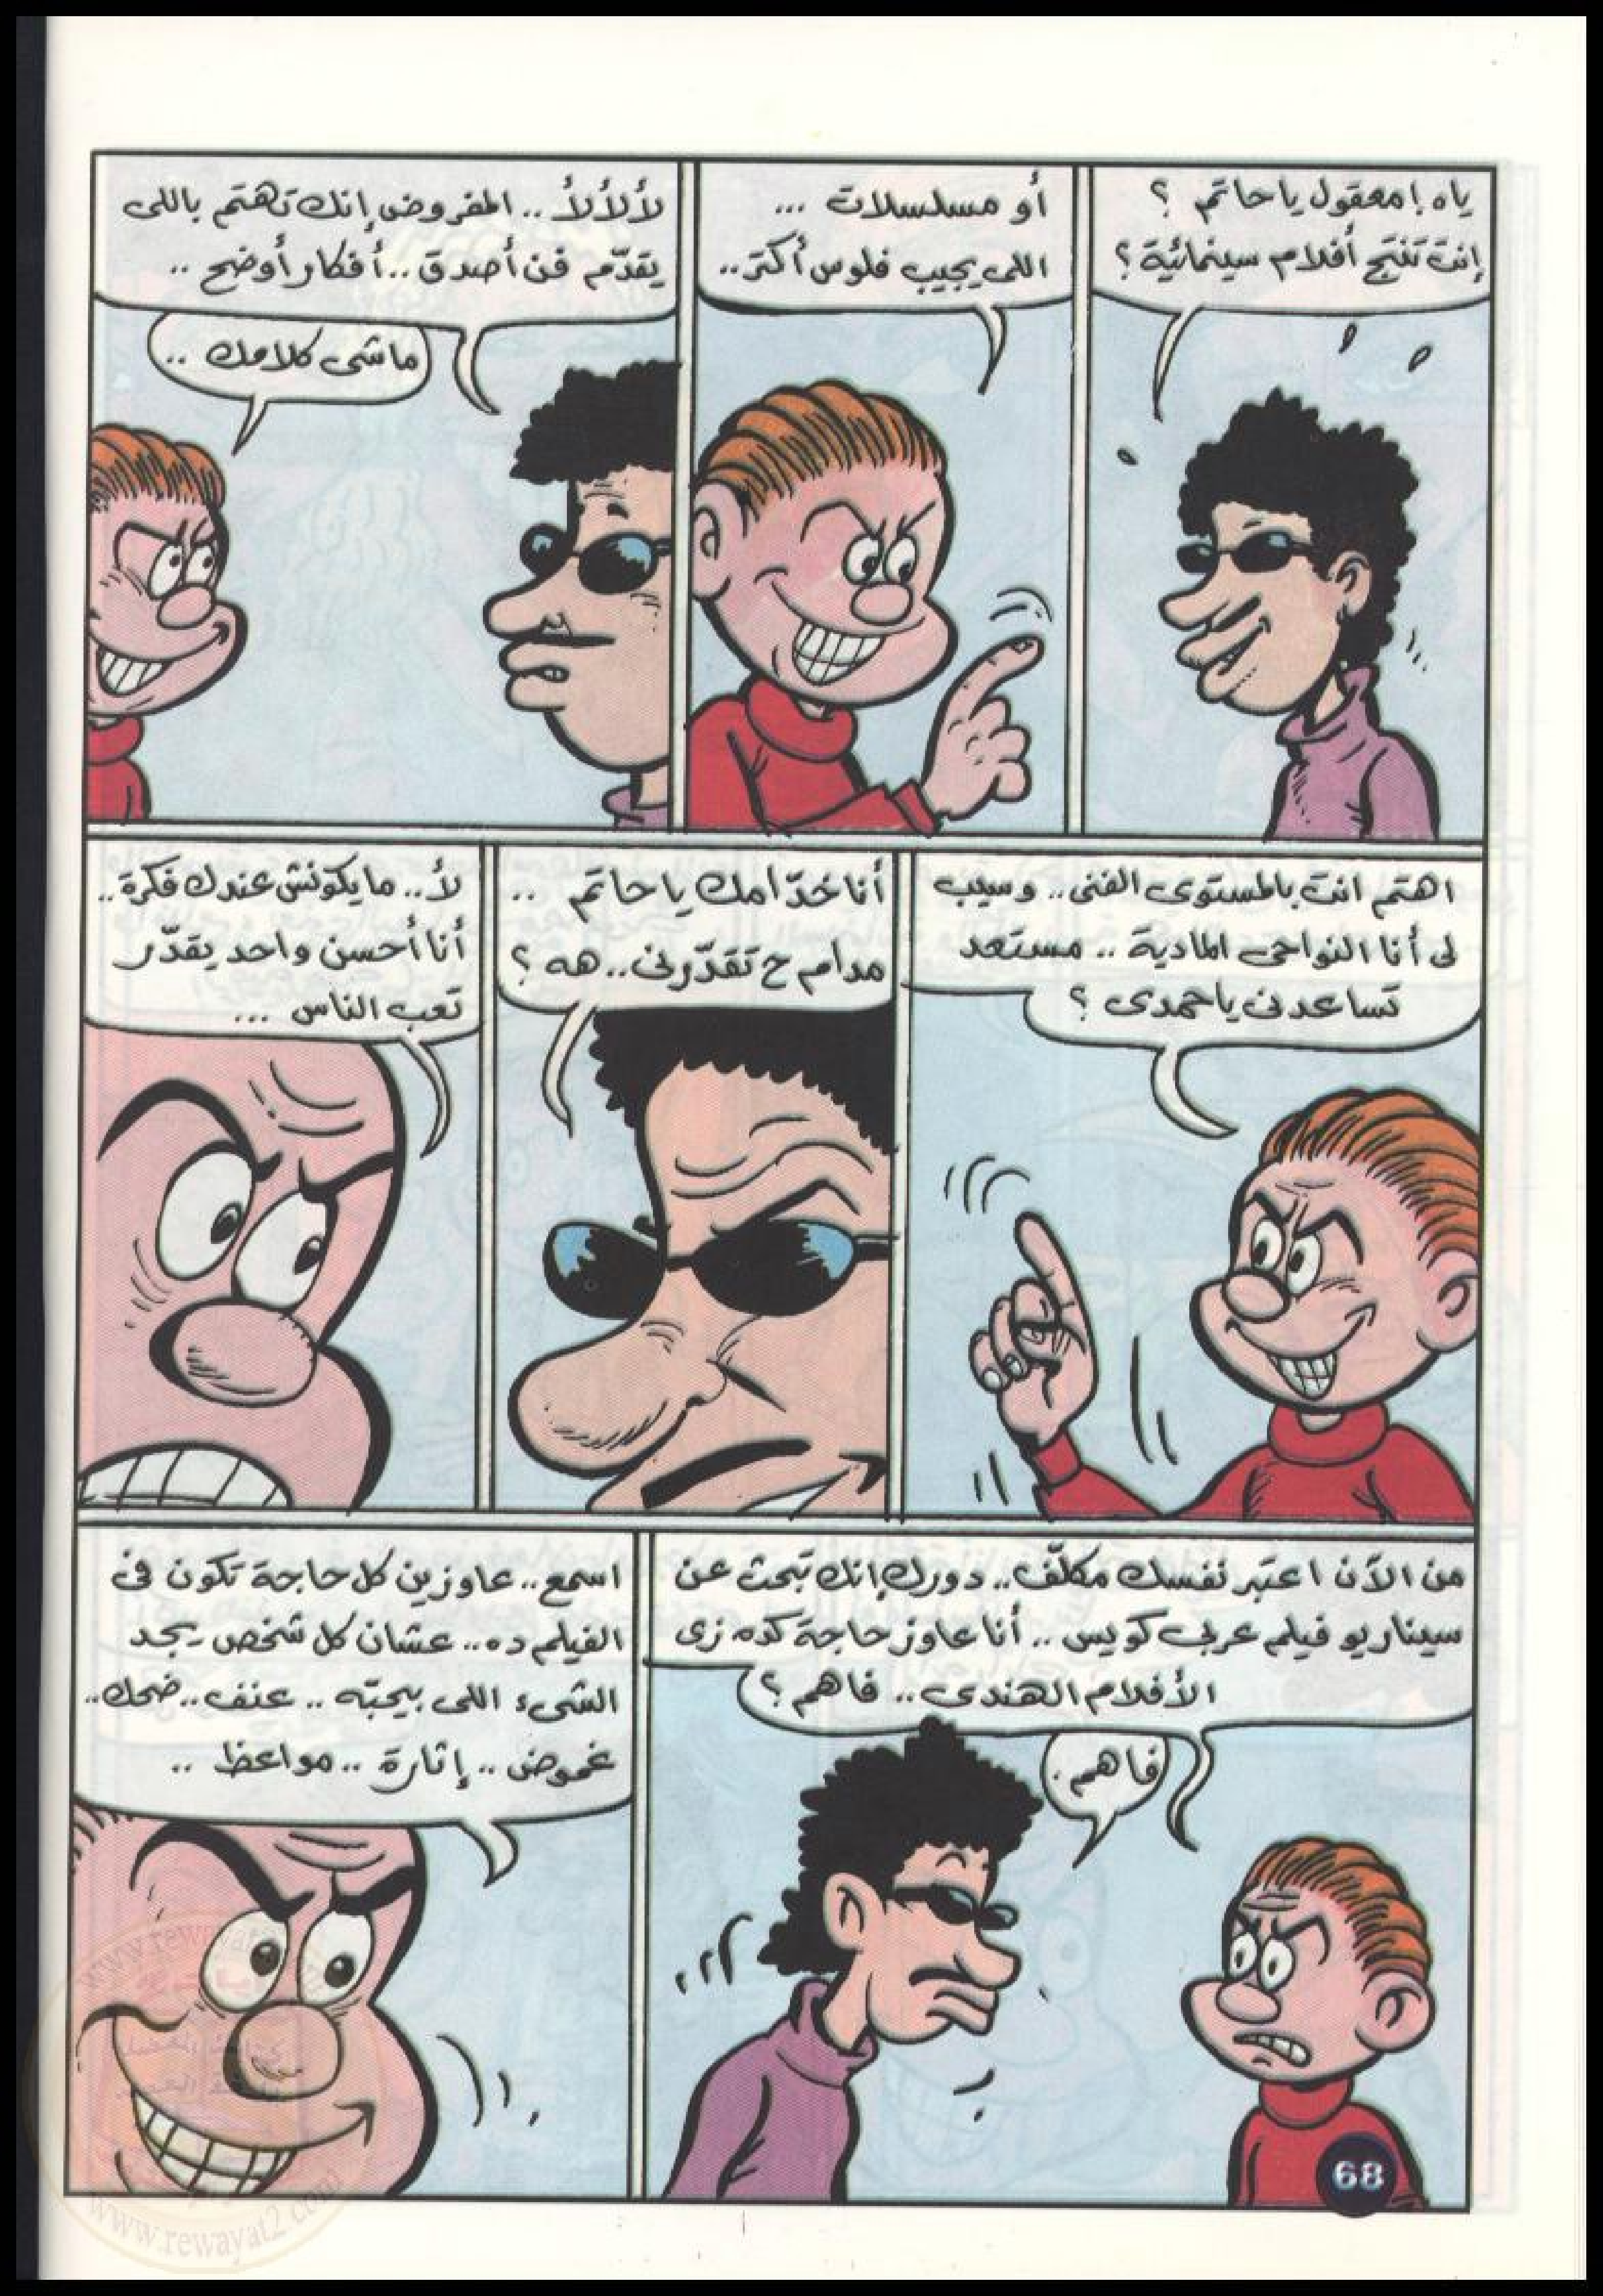 ياه! معقول يا حاتم ؟
إنت تنتج أفلام سينمائية ؟
أو مسلسلات ...
اللى يجيب فلوس أكتر..
لألألأ .. المفروض إنك تهتم باللى
يقدّم فن أصدق .. أفكار أوضح ..
ماشى كلامك ..
اهتم انت بالمستوى الفنى .. وسيب
لى أنا النواحى المادية .. مستعد
تساعدنى يا حمدى ؟
أنا خدّامك يا حاتم ..
مدام ح تقدّرنى .. هه ؟
لأ .. ما يكونش عندك فكرة ..
أنا أحسن واحد يقدّر
تعب الناس ...
من الآن اعتبر نفسك مكلّف .. دورك إنك تبحث عن
سيناريو فيلم عربى كويس .. أنا عاوز حاجة كده زى
الأفلام الهندى .. فاهم ؟
فاهم .
اسمع .. عاوزين كل حاجة تكون فى
الفيلم ده .. عشان كل شخص يجد
الشىء اللى بيحبّه .. عنف .. ضحك ..
غموض .. إثارة .. مواعظ ..
68
www.rewayat2.com